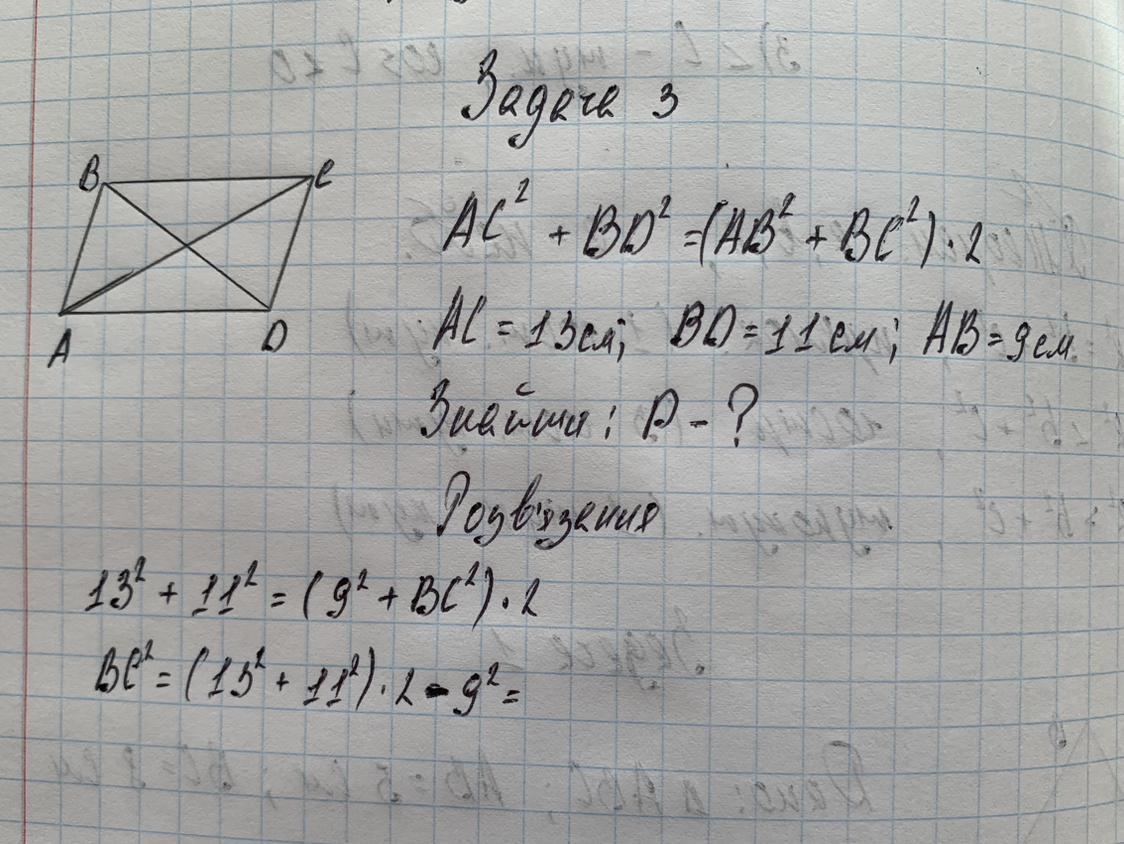 Задача 3
B C
A D
AC² + BD² = (AB² + BC²) · 2
AC = 13 см; BD = 11 см; AB = 9 см
Знайти: P - ?
Розв'язання
13² + 11² = (9² + BC²) · 2
BC² = (13² + 11²) · 2 - 9² =